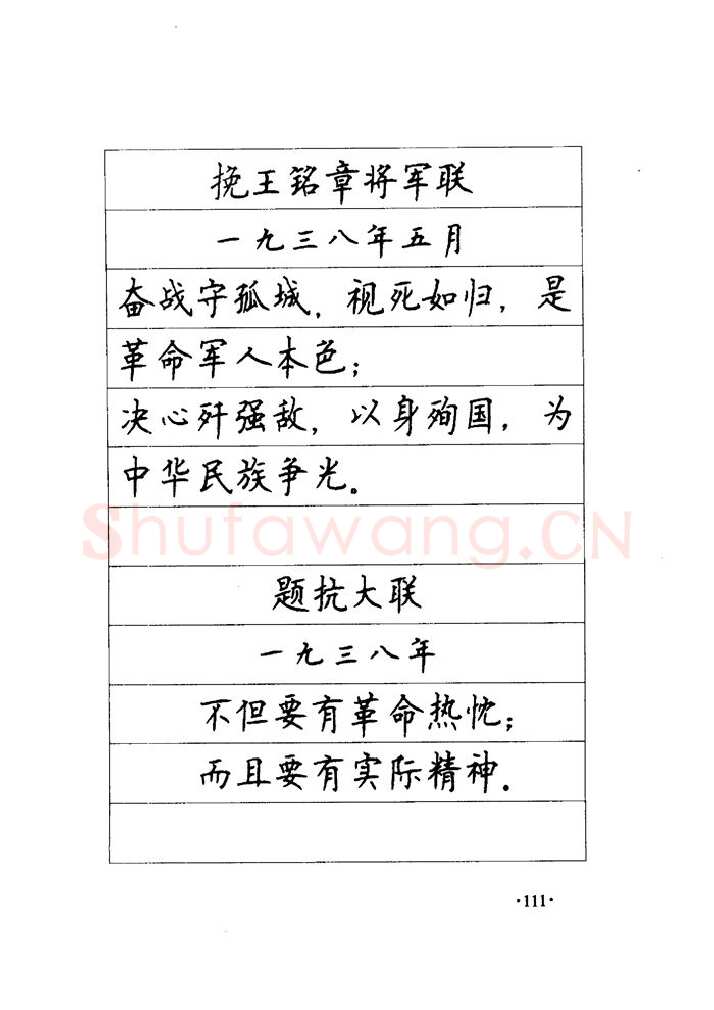 挽王铭章将军联
一九三八年五月
奋战守孤城，视死如归，是
革命军人本色；
决心歼强敌，以身殉国，为
中华民族争光。
Shufawang.CN
题抗大联
一九三八年
不但要有革命热忱；
而且要有实际精神。
·111·